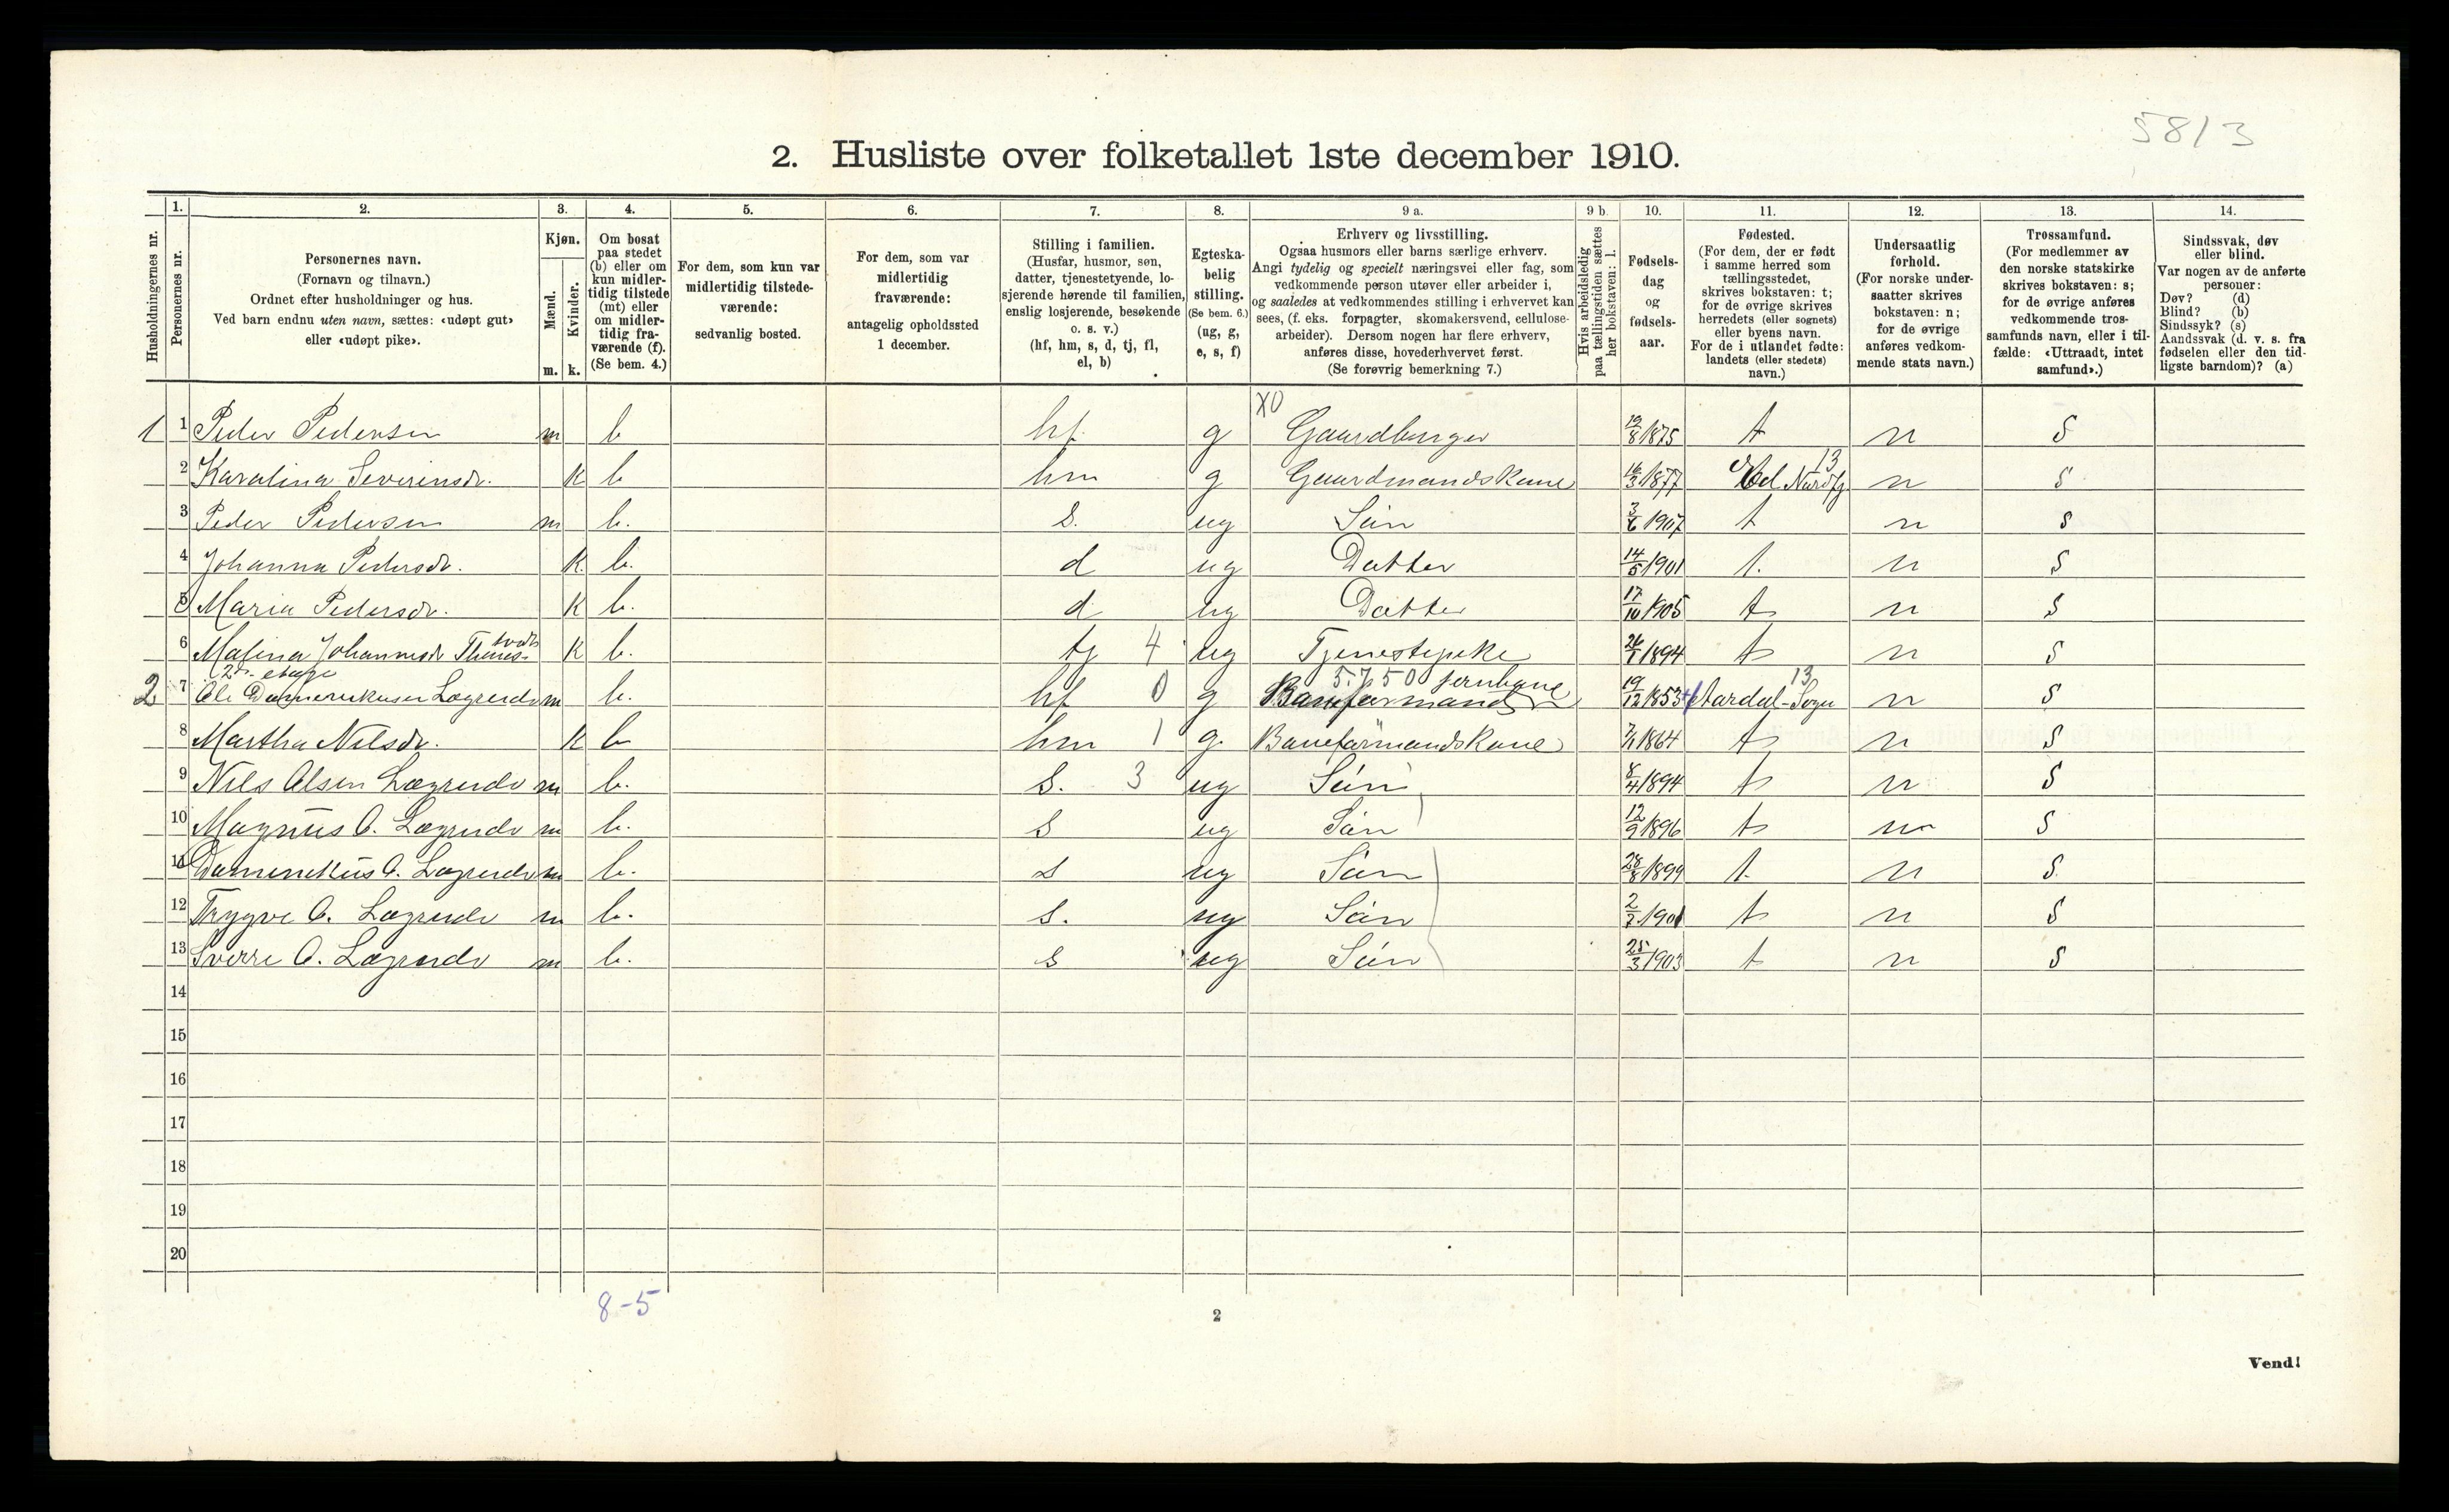 58/3
2. Husliste over folketallet 1ste december 1910.
1. 2. 3. 4. 5. 6. 7. 8. 9 a. 9 b. 10. 11. 12. 13. 14.
Husholdningernes nr.
Personernes nr.
Personernes navn.
(Fornavn og tilnavn.)
Ordnet efter husholdninger og hus.
Ved barn endnu uten navn, sættes: «udøpt gut»
eller «udøpt pike».
Kjøn.
Mænd.
Kvinder.
m. k.
Om bosat
paa stedet
(b) eller om
kun midler-
tidig tilstede
(mt) eller
om midler-
tidig fra-
værende (f).
(Se bem. 4.)
For dem, som kun var
midlertidig tilstede-
værende:
sedvanlig bosted.
For dem, som var
midlertidig
fraværende:
antagelig opholdssted
1 december.
Stilling i familien.
(Husfar, husmor, søn,
datter, tjenestetyende, lo-
sjerende hørende til familien,
enslig losjerende, besøkende
o. s. v.)
(hf, hm, s, d, tj, fl,
el, b)
Egteska-
belig
stilling.
(Se bem. 6.)
(ug, g,
e, s, f)
Erhverv og livsstilling.
Ogsaa husmors eller barns særlige erhverv.
Angi tydelig og specielt næringsvei eller fag, som
vedkommende person utøver eller arbeider i,
og saaledes at vedkommendes stilling i erhvervet kan
sees, (f. eks. forpagter, skomakersvend, cellulose-
arbeider). Dersom nogen har flere erhverv,
anføres disse, hovederhvervet først.
(Se forøvrig bemerkning 7.)
Hvis arbeidsledig
paa tællingstiden sættes
her bokstaven: l.
Fødsels-
dag
og
fødsels-
aar.
Fødested.
(For dem, der er født
i samme herred som
tællingsstedet,
skrives bokstaven: t;
for de øvrige skrives
herredets (eller sognets)
eller byens navn.
For de i utlandet fødte:
landets (eller stedets)
navn.)
Undersaatlig
forhold.
(For norske under-
saatter skrives
bokstaven: n;
for de øvrige
anføres vedkom-
mende stats navn.)
Trossamfund.
(For medlemmer av
den norske statskirke
skrives bokstaven: s;
for de øvrige anføres
vedkommende tros-
samfunds navn, eller i til-
fælde: «Uttraadt, intet
samfund».)
Sindssvak, døv
eller blind.
Var nogen av de anførte
personer:
Døv? (d)
Blind? (b)
Sindssyk? (s)
Aandssvak (d. v. s. fra
fødselen eller den tid-
ligste barndom)? (a)
X0
1 1 Peder Pedersen m b hf g Gaardbruger 19/8 1875 t n S
13
2 Karolina Severinsdr. K b hm g Gaardmandskone 16/3 1877 Nordfj n S
3 Peder Pedersen m b. s. ug Sön 3/6 1907 t n S
4 Johanna Pedersdr. K. b. d ug Datter 14/5 1901 t. n S
5 Maria Pedersdr. K b. d ug Datter 17/10 1905 t n S
6 Malina Johannesdr K b. tj 4 ug Tjenestepike 26/1 1894 t n S
2den etage 5750 jernbane 13
2 7 Ole Lægreid m b. hf 0 g Baneformand 19/12 1853 Aardal-Sogn n S
8 Martha Nilsdr. K b hm 1 g. Baneformandskone 7/1 1864 t n S
9 Nils Olsen Lægreid m b. s. 3 ug Sön 8/4 1894 t n S
10 Magnus O. Lægreid m b. s ug Sön 12/9 1896 t n S
11 O. Lægreid m b. s ug Sön 28/8 1899 t. n S.
12 Trygve O. Lægreid m b. s. ug Sön 2/7 1901 t n S
13 Sverre O. Lægreid m b. s ug Sön 25/3 1903 t n S
14
15
16
17
18
19
20
8-5
2
Vend!